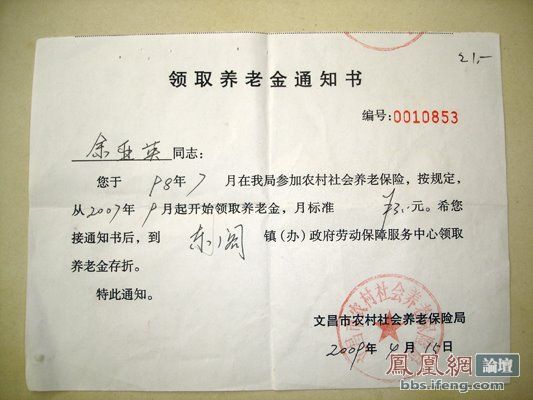 21.-
领取养老金通知书
编号:0010853
余亚英 同志:
您于 98年7月在我局参加农村社会养老保险,按规定,
从2007年9月起开始领取养老金,月标准 元。希您
接通知书后,到 东阁 镇(办)政府劳动保障服务中心领取
养老金存折。
特此通知。
文昌市农村社会养老保险局
2009年4月15日
鳳凰網 論壇
bbs.ifeng.com